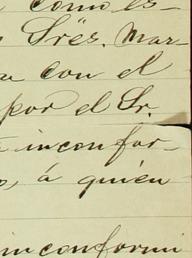 como es-
Srēs. Mar-
con el
por el Sr.
inconfor-
á quien
inconformi